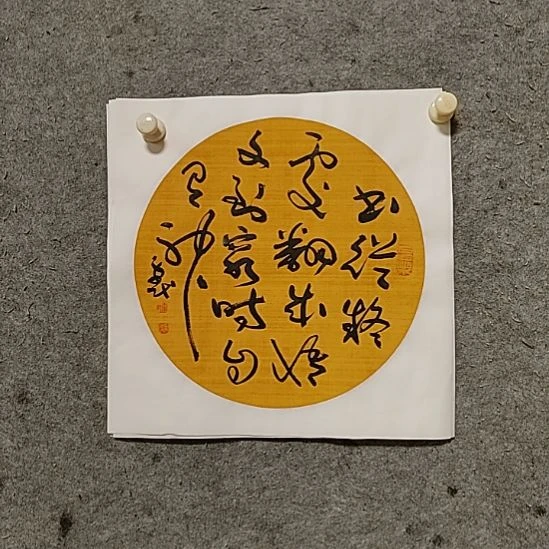 书从疑
处翻成悟
文到穷时自
有神